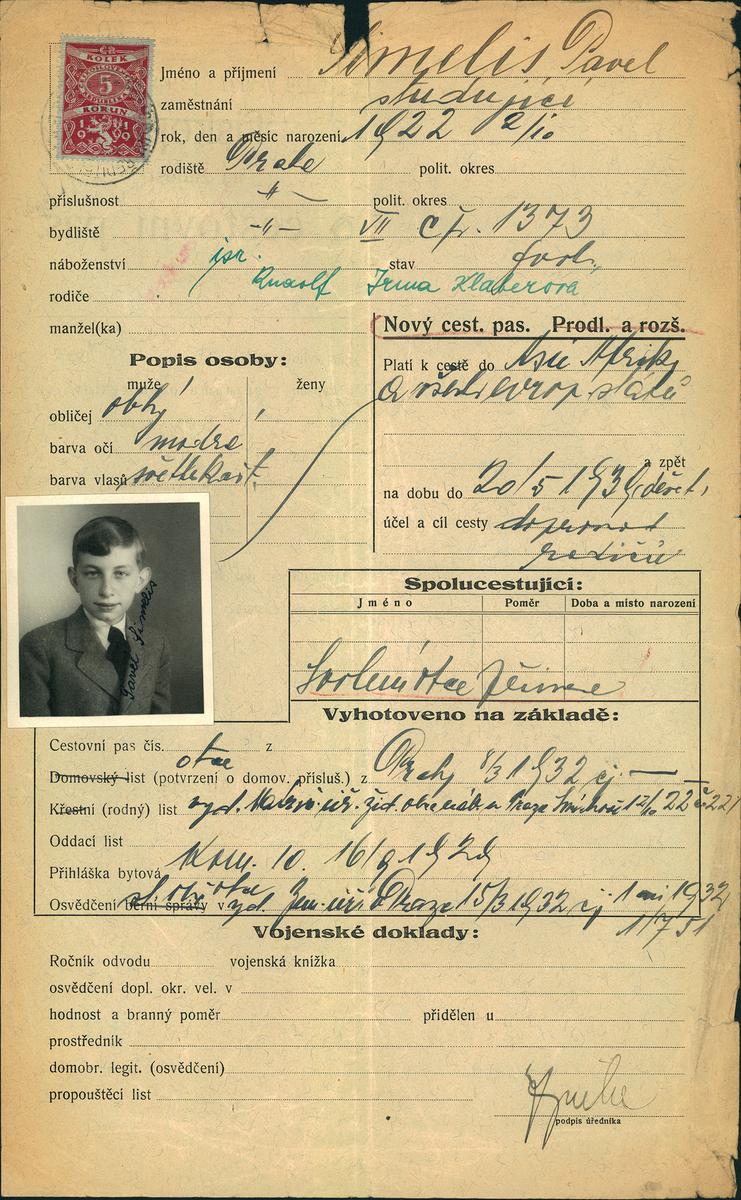 ČR
KOLEK
5
KORUN
1919
Jméno a příjmení Simelis Pavel
zaměstnání studující
rok, den a měsíc narození 1922 2/10
rodiště Praha polit. okres
příslušnost -"- polit. okres
bydliště -"- VII čp. 1373
náboženství isr. stav svob.
rodiče Rudolf Irma Klaberová
manžel(ka)
Nový cest. pas. Prodl. a rozš.
Popis osoby:
muže ženy
obličej obly
barva očí modré
barva vlasů světlekašt.
Platí k cestě do Asie Afriky
a všech evrop států
a zpět
na dobu do 20/5 193
účel a cíl cesty doprovod
rodičů
Pavel Simelis
Spolucestující:
Jméno Poměr Doba a místo narození
Svolení otce
Vyhotoveno na základě:
Cestovní pas čís. z
otce
Domovský list (potvrzení o domov. přísluš.) z Prahy 8/3 1932 čj. —
Křestní (rodný) list vyd. žid. obce Praze Smíchov 12/10 22
Oddací list
Přihláška bytová Kom. 10. 16/9 1929
Osvědčení berní správy v otce vyd. Praze 15/3 1932 čj. 1932
11751
Vojenské doklady:
Ročník odvodu vojenská knížka
osvědčení dopl. okr. vel. v
hodnost a branný poměr přidělen u
prostředník
domobr. legit. (osvědčení)
propouštěcí list
podpis úředníka